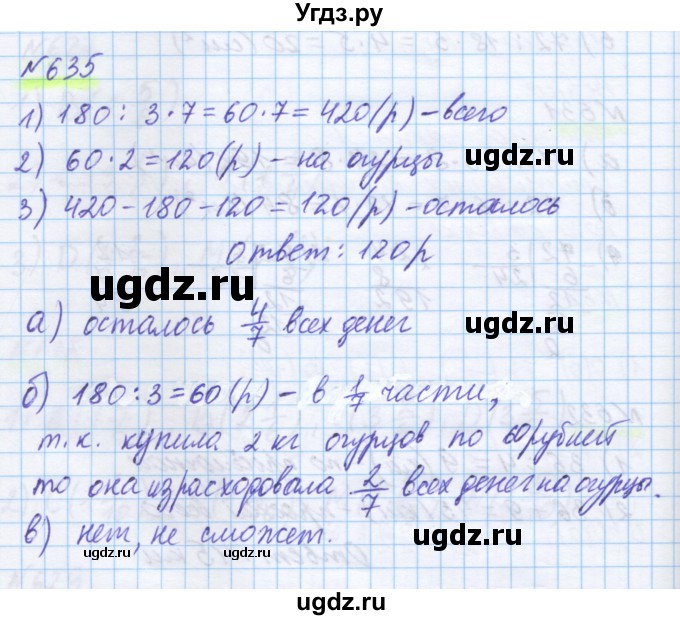 Угдз.ру
№635
1) 180 : 3 · 7 = 60 · 7 = 420 (р) – всего
2) 60 · 2 = 120 (р) – на огурцы
ugdz.ru
3) 420 – 180 – 120 = 120 (р) – осталось
Ответ: 120 р
ugdz.ru
а) осталось 4/7 всех денег
ugdz.ru
б) 180 : 3 = 60 (р) – в 1/7 части,
т.к. купила 2 кг огурцов по 60 рублей
то она израсходовала 2/7 всех денег на огурцы.
в) нет, не сможет.
ugdz.ru
ugdz.ru
ugdz.ru